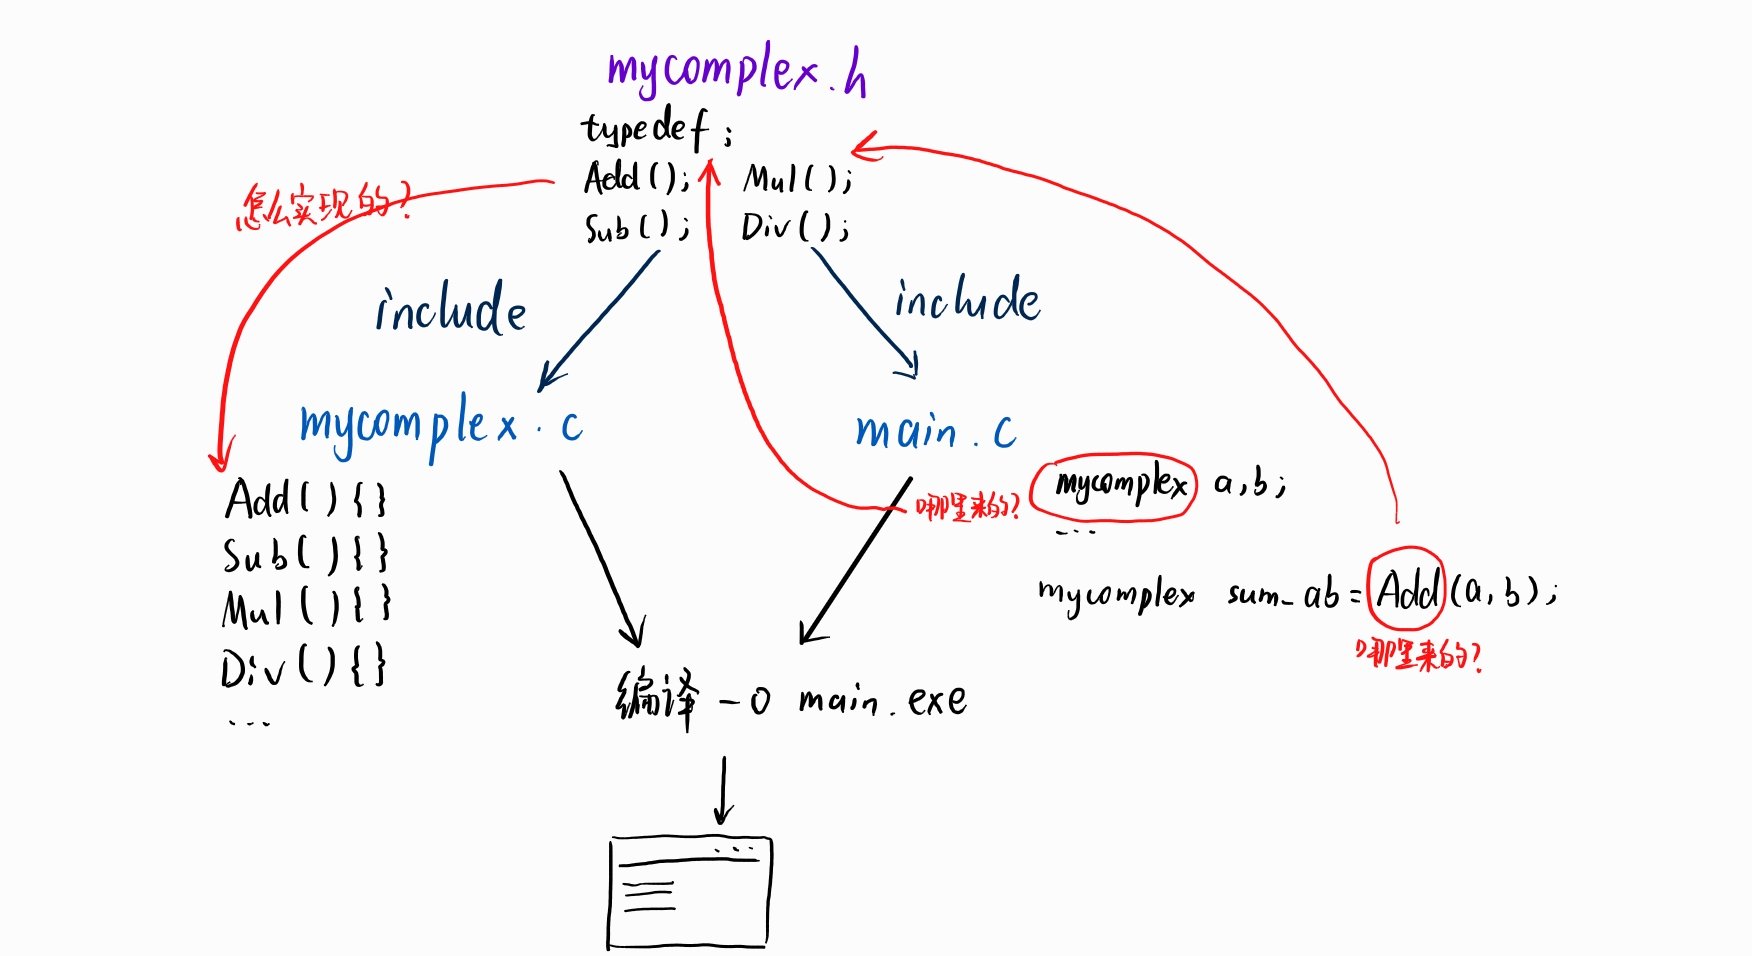 mycomplex.h
typedef ;
Add(); Mul();
Sub(); Div();
怎么实现的?
include
include
mycomplex.c
main.c
Add(){}
Sub(){}
Mul(){}
Div(){}
...
哪里来的?
mycomplex a,b;
...
mycomplex sum_ab = Add(a,b);
哪里来的?
编译 -o main.exe